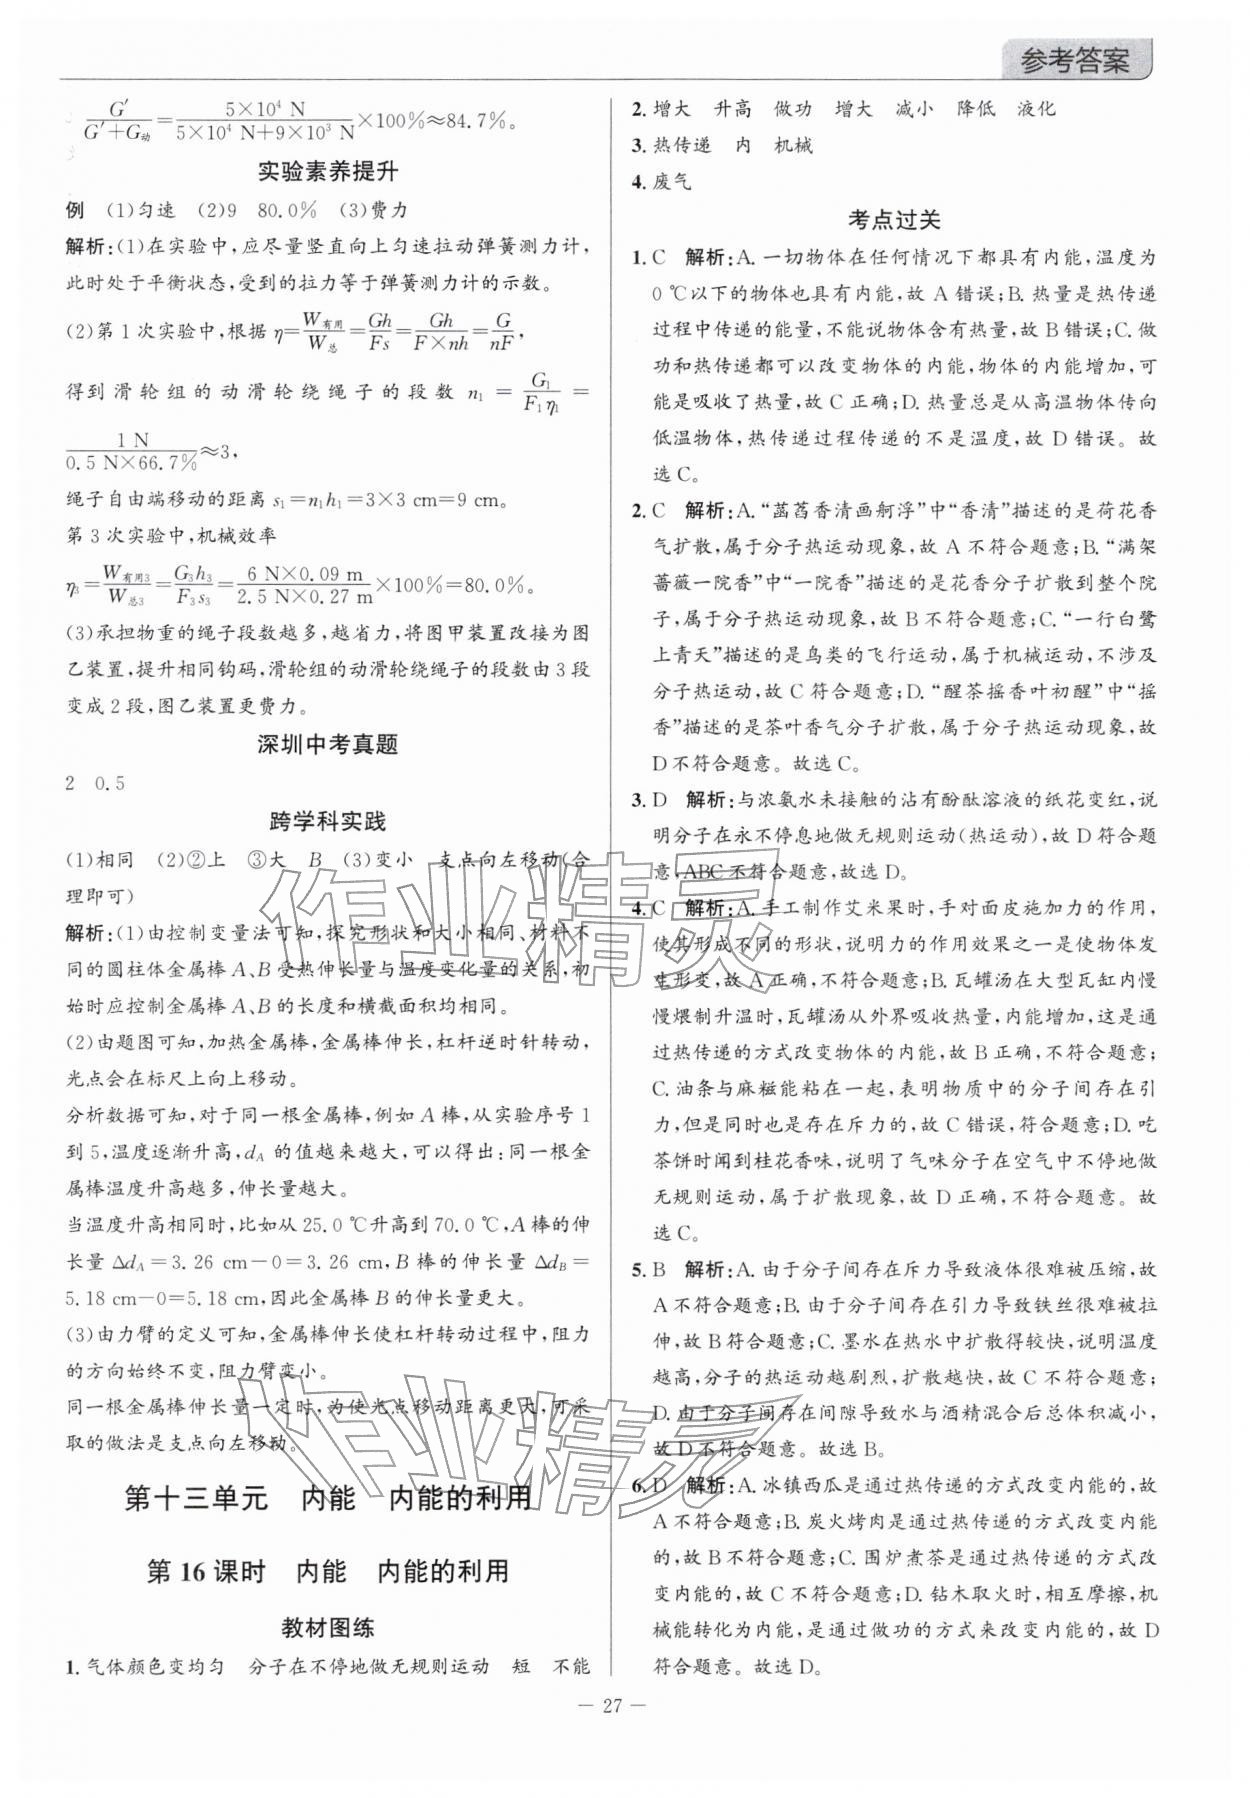 参考答案
G′/(G′+G动)=5×10⁴ N/(5×10⁴ N+9×10³ N)×100%≈84.7%。
实验素养提升
例 (1)匀速 (2)9 80.0% (3)费力
解析:(1)在实验中,应尽量竖直向上匀速拉动弹簧测力计,
此时处于平衡状态,受到的拉力等于弹簧测力计的示数。
(2)第1次实验中,根据 η=W有用/W总=Gh/Fs=Gh/(F×nh)=G/nF,
得到滑轮组的动滑轮绕绳子的段数 n₁=G₁/(F₁η₁)=
1 N/(0.5 N×66.7%)≈3,
绳子自由端移动的距离 s₁=n₁h₁=3×3 cm=9 cm。
第3次实验中,机械效率
η₃=W有用3/W总3=G₃h₃/F₃s₃=(6 N×0.09 m)/(2.5 N×0.27 m)×100%=80.0%。
(3)承担物重的绳子段数越多,越省力,将图甲装置改接为图
乙装置,提升相同钩码,滑轮组的动滑轮绕绳子的段数由3段
变成2段,图乙装置更费力。
深圳中考真题
2 0.5
跨学科实践
(1)相同 (2)②上 ③大 B (3)变小 支点向左移动(合
理即可)
解析:(1)由控制变量法可知,探究形状和大小相同、材料不
同的圆柱体金属棒A、B受热伸长量与温度变化量的关系,初
始时应控制金属棒A、B的长度和横截面积均相同。
(2)由题图可知,加热金属棒,金属棒伸长,杠杆逆时针转动,
光点会在标尺上向上移动。
分析数据可知,对于同一根金属棒,例如A棒,从实验序号1
到5,温度逐渐升高,dA 的值越来越大,可以得出:同一根金
属棒温度升高越多,伸长量越大。
当温度升高相同时,比如从25.0 ℃升高到70.0 ℃,A棒的伸
长量 ΔdA=3.26 cm-0=3.26 cm,B棒的伸长量 ΔdB=
5.18 cm-0=5.18 cm,因此金属棒B的伸长量更大。
(3)由力臂的定义可知,金属棒伸长使杠杆转动过程中,阻力
的方向始终不变,阻力臂变小。
同一根金属棒伸长量一定时,为使光点移动距离更大,可采
取的做法是支点向左移动。
第十三单元 内能 内能的利用
第16课时 内能 内能的利用
教材图练
1. 气体颜色变均匀 分子在不停地做无规则运动 短 不能
2. 增大 升高 做功 增大 减小 降低 液化
3. 热传递 内 机械
4. 废气
考点过关
1. C 解析:A. 一切物体在任何情况下都具有内能,温度为
0 ℃以下的物体也具有内能,故A错误;B. 热量是热传递
过程中传递的能量,不能说物体含有热量,故B错误;C. 做
功和热传递都可以改变物体的内能,物体的内能增加,可
能是吸收了热量,故C正确;D. 热量总是从高温物体传向
低温物体,热传递过程传递的不是温度,故D错误。故
选C。
2. C 解析:A.“菡萏香清画舸浮”中“香清”描述的是荷花香
气扩散,属于分子热运动现象,故A不符合题意;B.“满架
蔷薇一院香”中“一院香”描述的是花香分子扩散到整个院
子,属于分子热运动现象,故B不符合题意;C.“一行白鹭
上青天”描述的是鸟类的飞行运动,属于机械运动,不涉及
分子热运动,故C符合题意;D.“醒茶摇香叶初醒”中“摇
香”描述的是茶叶香气分子扩散,属于分子热运动现象,故
D不符合题意。故选C。
3. D 解析:与浓氨水未接触的沾有酚酞溶液的纸花变红,说
明分子在永不停息地做无规则运动(热运动),故D符合题
意,ABC不符合题意。故选D。
4. C 解析:A. 手工制作艾米果时,手对面皮施加力的作用,
使其形成不同的形状,说明力的作用效果之一是使物体发
生形变,故A正确,不符合题意;B. 瓦罐汤在大型瓦缸内慢
慢煨制升温时,瓦罐汤从外界吸收热量,内能增加,这是通
过热传递的方式改变物体的内能,故B正确,不符合题意;
C. 油条与麻糍能粘在一起,表明物质中的分子间存在引
力,但是同时也是存在斥力的,故C错误,符合题意;D. 吃
茶饼时闻到桂花香味,说明了气味分子在空气中不停地做
无规则运动,属于扩散现象,故D正确,不符合题意。故
选C。
5. B 解析:A. 由于分子间存在斥力导致液体很难被压缩,故
A不符合题意;B. 由于分子间存在引力导致铁丝很难被拉
伸,故B符合题意;C. 墨水在热水中扩散得较快,说明温度
越高,分子的热运动越剧烈,扩散越快,故C不符合题意;
D. 由于分子间存在间隙导致水与酒精混合后总体积减小,
故D不符合题意。故选B。
6. D 解析:A. 冰镇西瓜是通过热传递的方式改变内能的,故
A不符合题意;B. 炭火烤肉是通过热传递的方式改变内能
的,故B不符合题意;C. 围炉煮茶是通过热传递的方式改
变内能的,故C不符合题意;D. 钻木取火时,相互摩擦,机
械能转化为内能,是通过做功的方式来改变内能的,故D
符合题意。故选D。
— 27 —
作业精灵
作业精灵